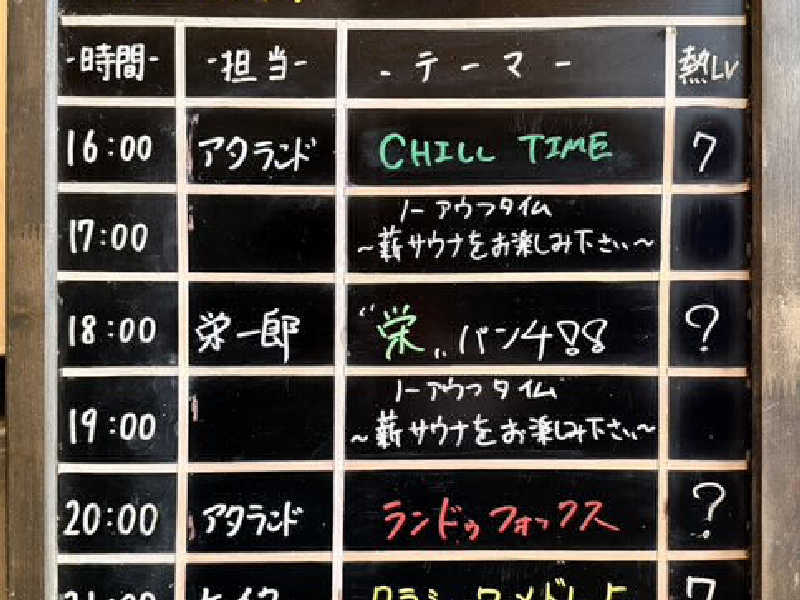 -時間- -担当- -テーマ- 熱LV
16:00 アクランド CHILL TIME 7
ノーアウフタイム
17:00 ～薪サウナをお楽しみ下さい～
18:00 栄一郎 "栄"パンチ!! ?
ノーアウフタイム
19:00 ～薪サウナをお楽しみ下さい～
20:00 アクランド ランドゥフォックス ?
7